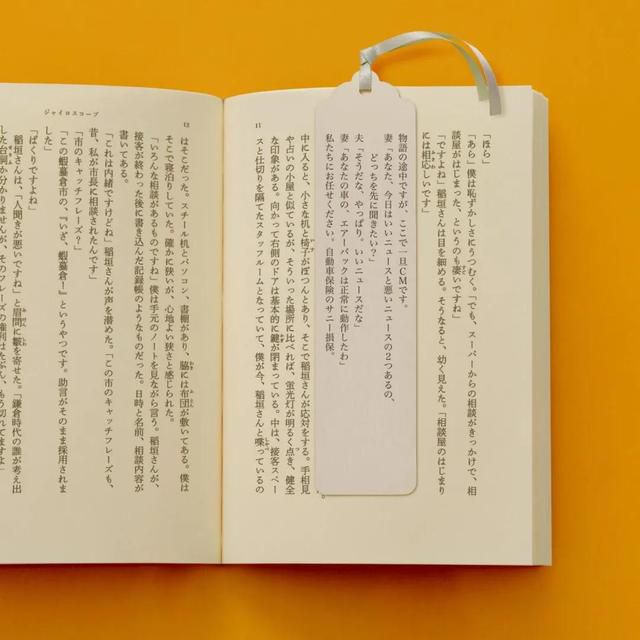 「ほら」
「あら」僕は恥ずかしさにうつむく。「でも、スーパーからの相談がきっかけで、相
談屋がはじまった、というのも凄いですね」
「ですよね」稲垣さんは目を細める。そうなると、幼く見えた。「相談屋のはじまり
には相応しいです」
物語の途中ですが、ここで一旦CMです。
妻「あなた、今日はいいニュースと悪いニュースの2つあるの、
どっちを先に聞きたい?」
夫「そうだな、やっぱり、いいニュースだな」
妻「あなたの車の、エアーバックは正常に動作したわ」
私たちにお任せください。自動車保険のサニー損保。
中に入ると、小さな机と椅子がぽつんとあり、そこで稲垣さんが応対をする。手相見
や占いの小屋と似ているが、そういった場所に比べれば、蛍光灯が明るく点き、健全
な印象がある。向かって右側のドアは基本的に鍵が閉まっている。中は、接客スペー
スと仕切りを隔てたスタッフルームとなっていて、僕が今、稲垣さんと喋っているの
11
ジャイロスコープ
12
はそこだった。スチール机とパソコン、書棚があり、脇には布団が敷いてある。僕は
そこで寝泊りしていた。確かに狭いが、心地よい狭さと感じられた。
「いろんな相談があるものですね」僕は手元のノートを見ながら言う。稲垣さんが、
接客が終わった後に書き込んだ記録帳のようなものだった。日時と名前、相談内容が
書いてある。
「これは内緒ですけどね」稲垣さんが声を潜めた。「この市のキャッチフレーズも、
昔、私が市長に相談されたんです」
「市のキャッチフレーズ?」
「この蝦蟇倉市の、『いざ、蝦蟇倉!』というやつです。助言がそのまま採用されま
した」
「ぱくりですよね」
稲垣さんは、「人聞きが悪いですね」と眉間に皺を寄せた。「鎌倉時代の誰が考え出
した台詞か分かりませんが、そのフレーズの権利はたぶん、もう切れてますよ」